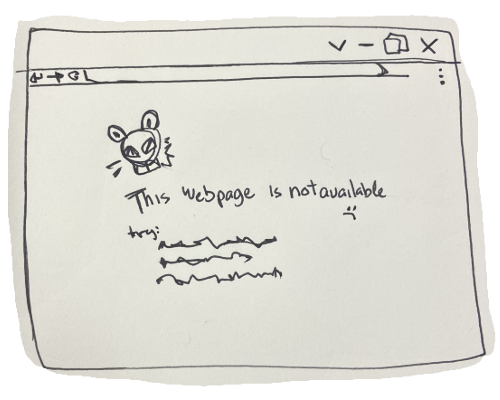 This webpage is not available
:(
try: